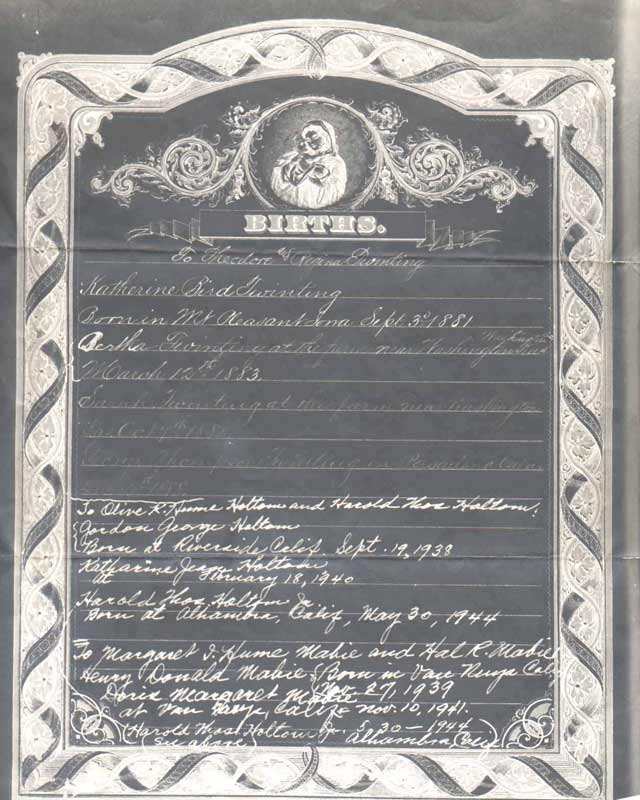 BIRTHS.
To Theodore and Regina Twinting
Katherine Bird Twinting
Born in Mt Pleasant Iowa Sept 3d 1881
Bertha Twinting at the farm near Washington
March 12th 1883.
Sarah Twinting at the farm near Washington
Thompson Twinting in Pasadena
To Olive R. Hume Holtom and Harold Thos Holtom:
Gordon George Holtom
Born at Riverside, Calif. Sept. 19, 1938
Katharine Jean Holtom
February 18, 1940
Harold Thos. Holtom Jr.
Born at Alhambra, Calif, May 30, 1944
To Margaret I. Hume Mabie and Hal R. Mabie
Henry Donald Mabie Born in Van Nuys Cal
Nov. 27, 1939
Doris Margaret Mabie
at Van Nuys, Calif - Nov. 10, 1941.
(Harold Thos. Holtom Jr. 5-30-1944
(see above) Alhambra, Calif